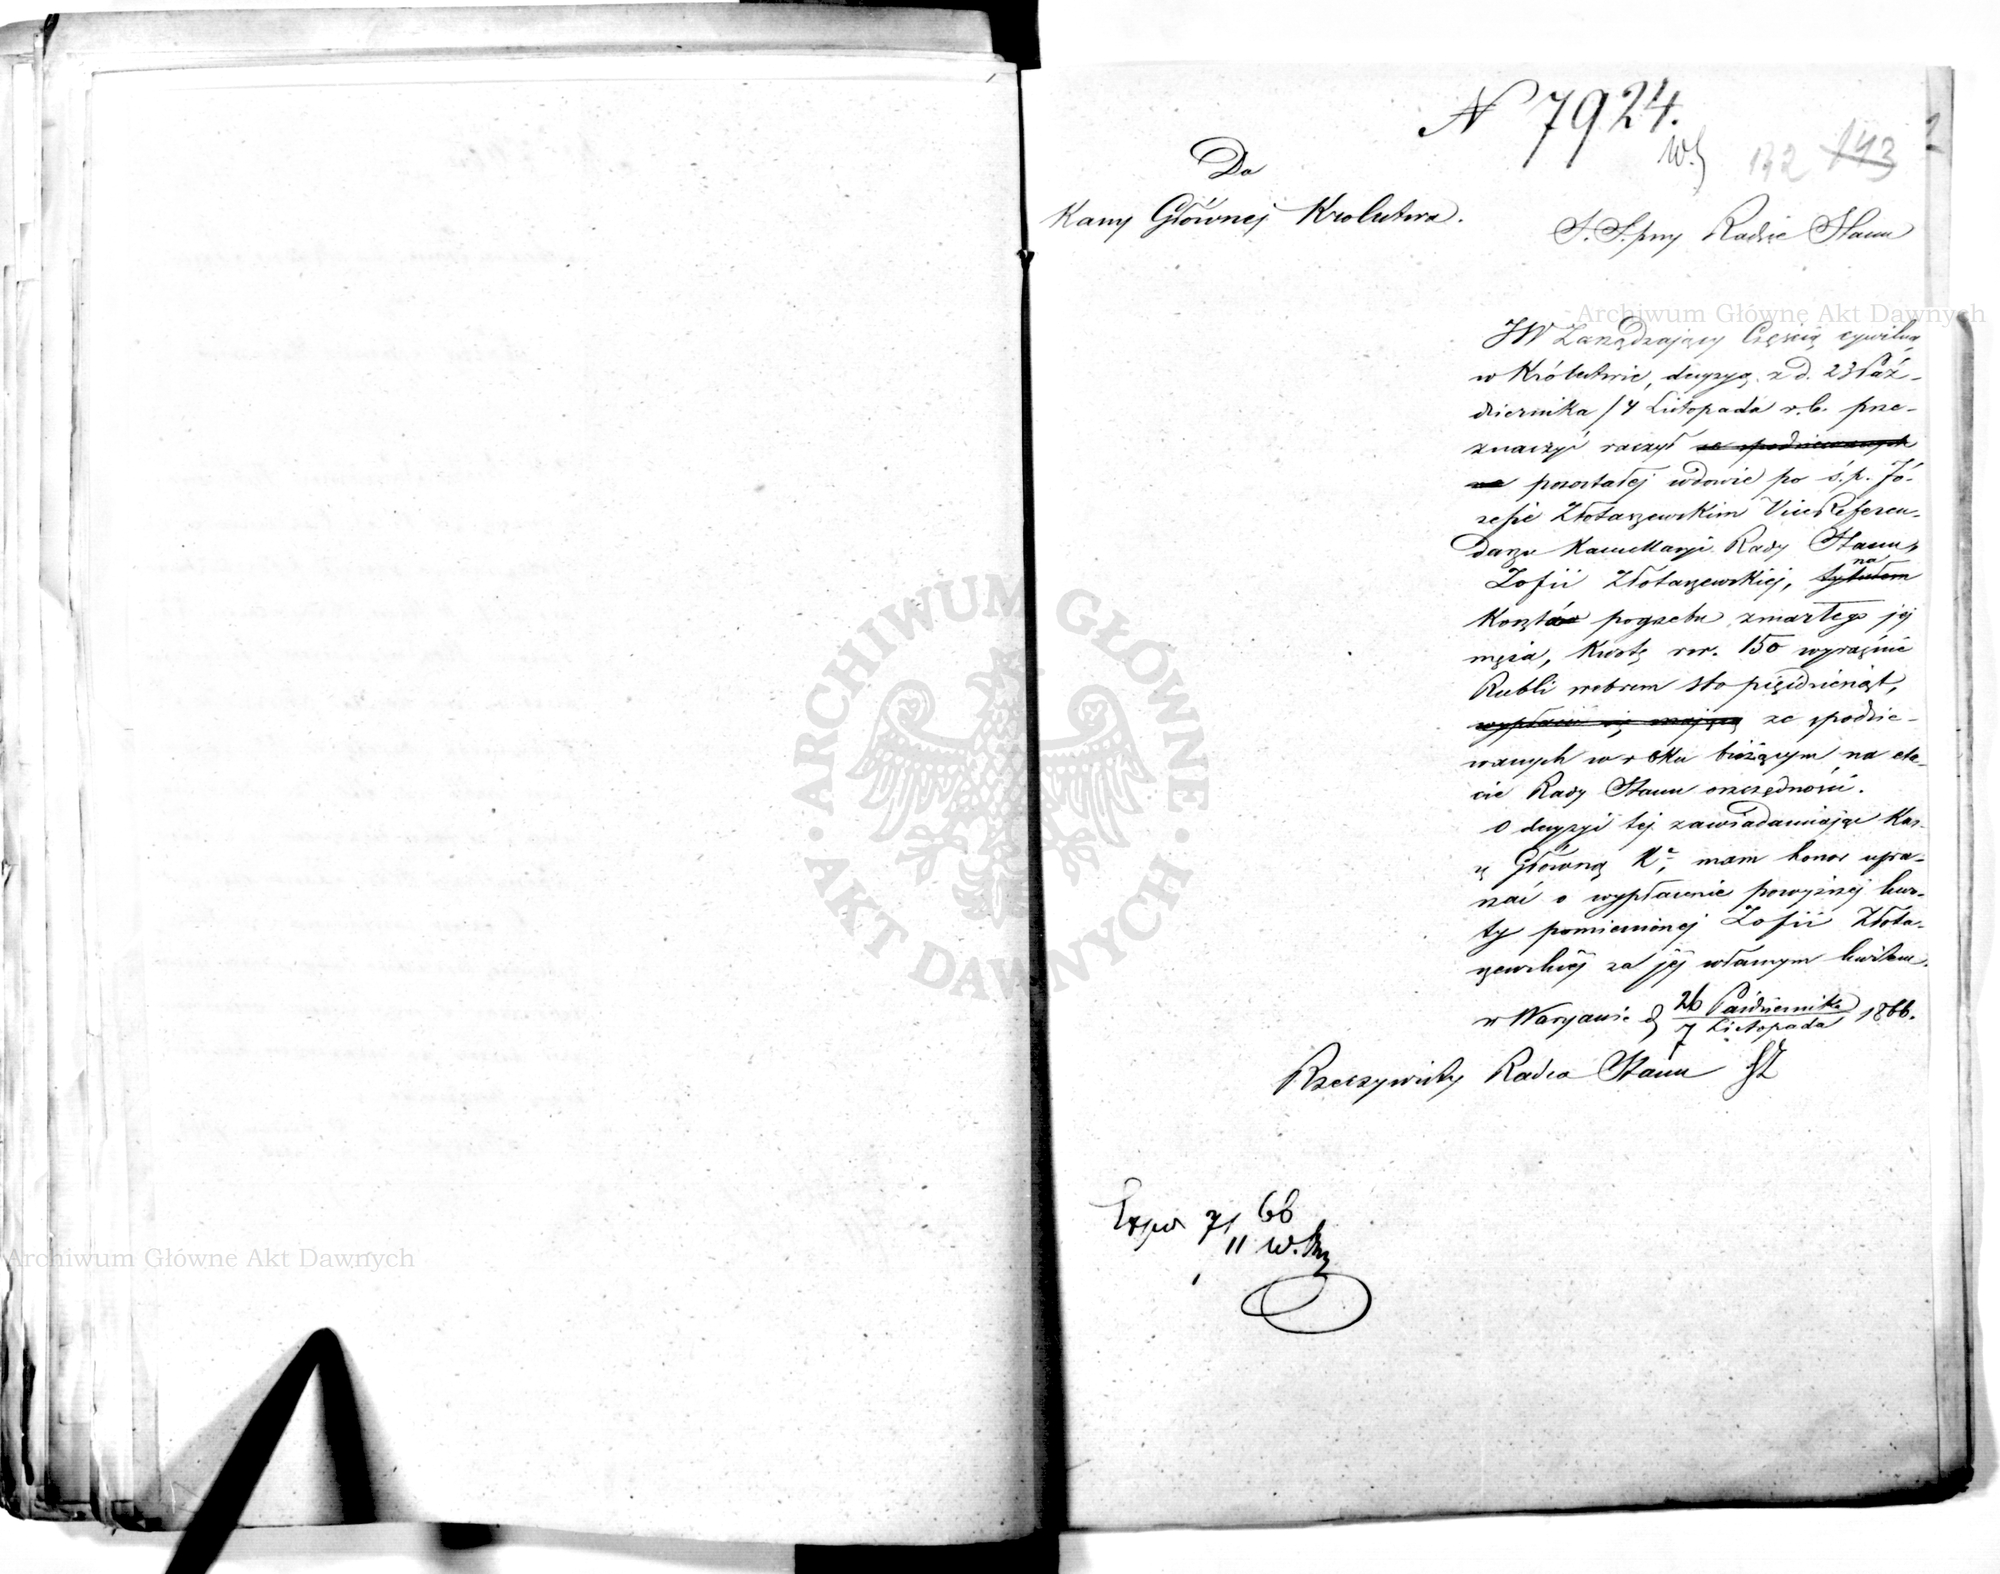 N 7924.
132 143
Do
Kassy Głównej Królestwa.
S. S. przy Radzie Stanu
Archiwum Główne Akt Dawnych
JW Zarządzający Częścią cywilną
w Królestwie, decyzyą z d. 23 Paź-
dziernika / 4 Listopada r.b. prze-
znaczyć raczył ze spodziewanych
na pozostałej wdowie po ś.p. Jó-
zefie Złotaszewskim ViceReferen-
darzu Kancellaryi Rady Stanu,
na
Zofii Złotaszewskiej, tytułem
koszta pogrzebu zmarłego jej
męża, kwotę rsr. 150 wyraźnie
Rubli srebrem sto pięćdziesiąt,
wypłacić się mającą ze spodzie-
wanych w roku bieżącym na eta-
cie Rady Stanu oszczędności.
O decyzyi tej zawiadamiając Kas-
sę Główną K, mam honor upra-
szać o wypłacenie powyższej kwo-
ty pomienionej Zofii Złota-
szewskiej za jej własnym kwitem.
w Warszawie d 26 Października / 7 Listopada 1866.
Rzeczywisty Radca Stanu
Exped 7/11 66
ARCHIWUM GŁÓWNE AKT DAWNYCH
Archiwum Główne Akt Dawnych